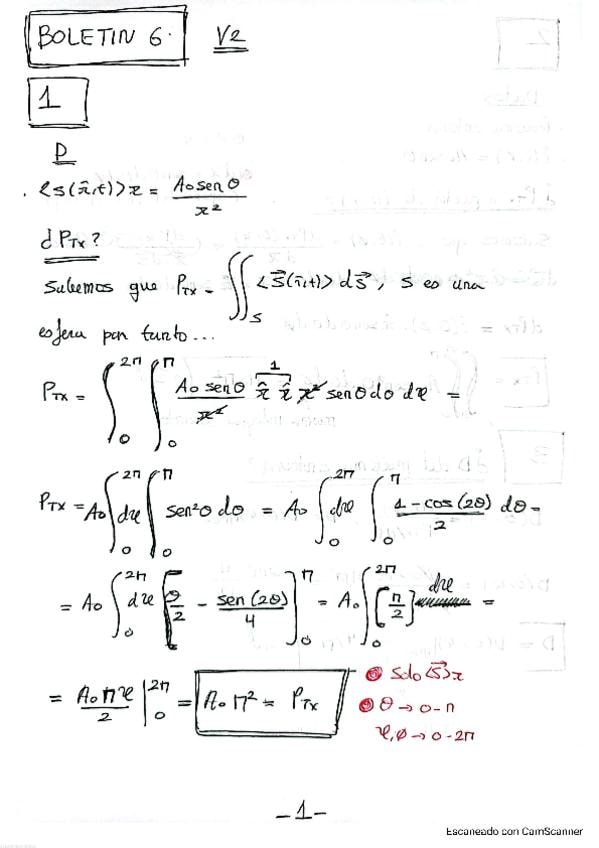 BOLETIN 6. V2
1
D
<s(r̂,t)>r = A₀ sen θ / r²
¿ P_Tx ?
Sabemos que P_Tx = ∬_S <S⃗(r̄,t)> dS⃗, S es una
esfera por tanto...
P_Tx = ∫₀^2π ∫₀^π (A₀ sen θ / r²) r̂ r̂ r² sen θ dθ dφ =
1
P_Tx = A₀ ∫₀^2π dφ ∫₀^π sen²θ dθ = A₀ ∫₀^2π dφ ∫₀^π (1 - cos(2θ))/2 dθ =
= A₀ ∫₀^2π dφ [θ/2 - sen(2θ)/4]₀^π = A₀ ∫₀^2π [π/2] dφ =
= A₀ π φ / 2 |₀^2π = A₀ π² = P_Tx
Solo <S⃗>r
θ → 0 - π
φ, ø → 0 - 2π
- 1 -
Escaneado con CamScanner